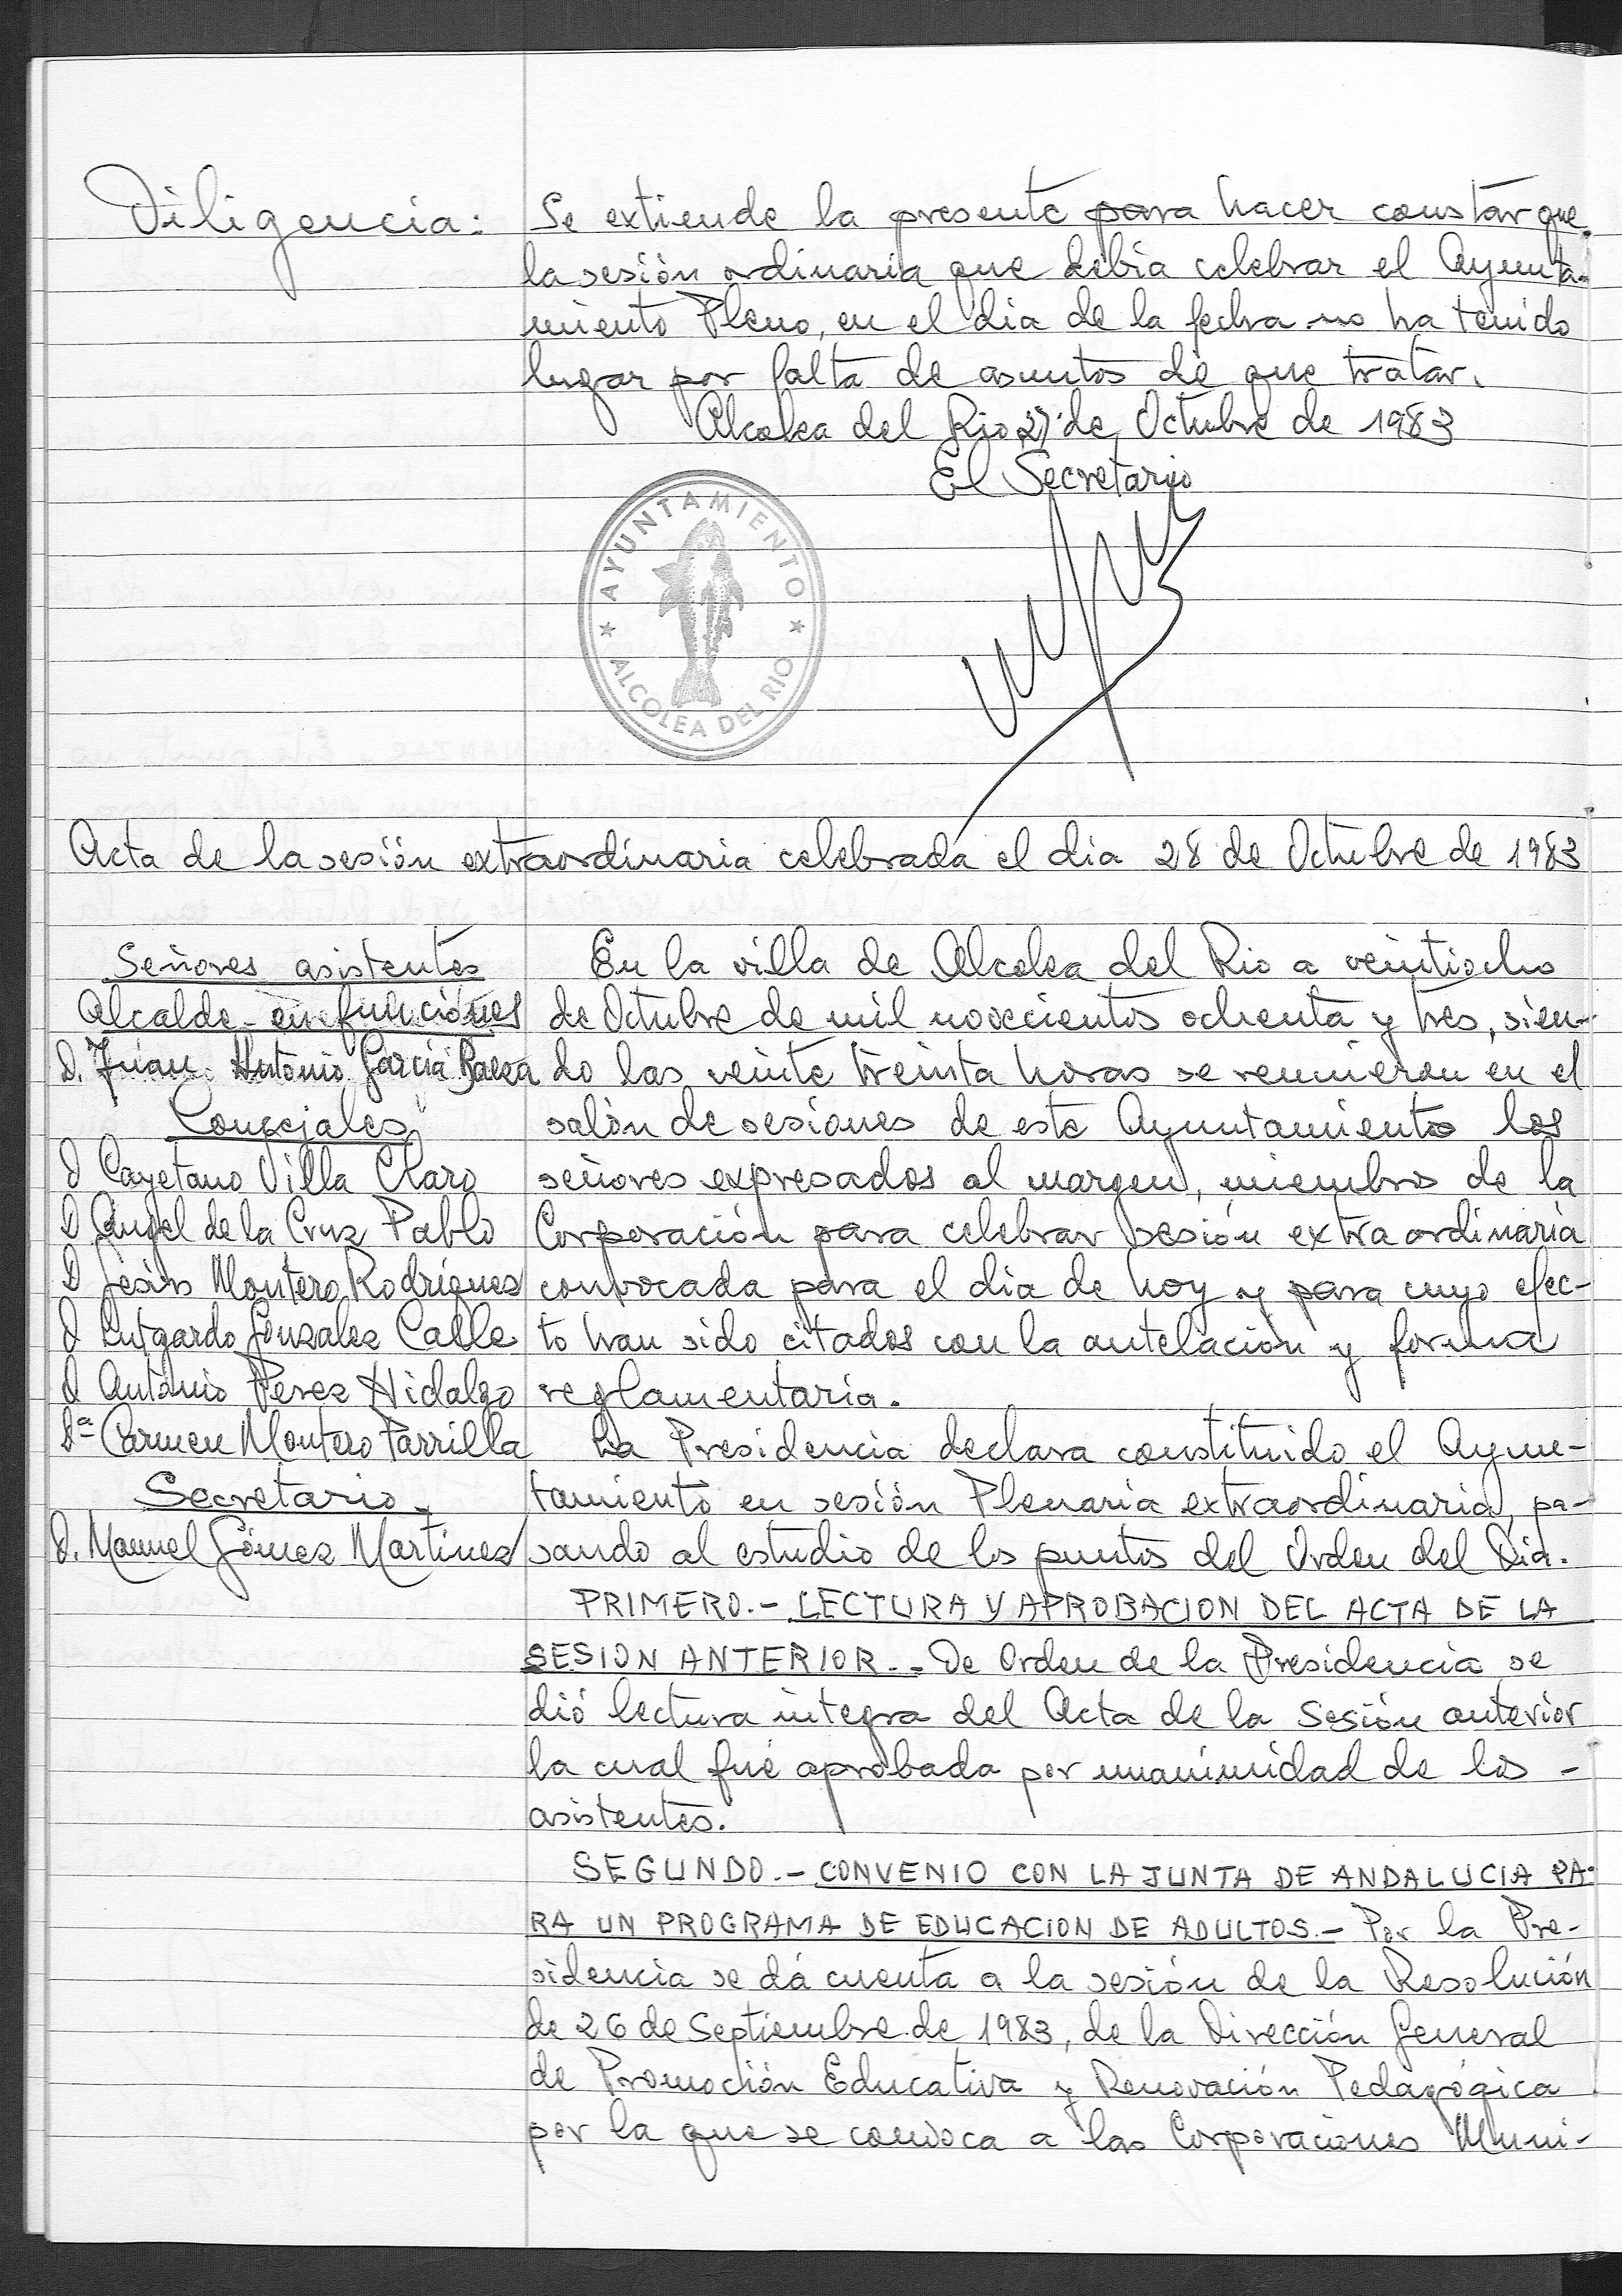 Diligencia: Se extiende la presente para hacer constar que
la sesión ordinaria que debia celebrar el Ayunta-
miento Pleno, en el dia de la fecha no ha tenido
lugar por falta de asuntos de que tratar.
Alcolea del Rio 27 de Octubre de 1983
El Secretario
AYUNTAMIENTO
ALCOLEA DEL RIO
Acta de la sesión extraordinaria celebrada el dia 28 de Octubre de 1983
Señores asistentes
Alcalde en funciones
D. Juan Antonio Garcia Baeza
Concejales
D Cayetano Villa Claro
D Angel de la Cruz Pablo
D Jesús Montero Rodriguez
D Lutgardo Gonzalez Calle
D Antonio Perez Hidalgo
Dª Carmen Montero Parrilla
Secretario.
D. Manuel Gómez Martinez
En la villa de Alcolea del Rio a veintiocho
de Octubre de mil novecientos ochenta y tres, sien-
do las veinte treinta horas se reunieron en el
salón de sesiones de este Ayuntamiento los
señores expresados al margen, miembros de la
Corporación para celebrar sesión extraordinaria
convocada para el dia de hoy y para cuyo efec-
to han sido citados con la antelación y forma
reglamentaria.
La Presidencia declara constituido el Ayun-
tamiento en sesión Plenaria extraordinaria, pa-
sando al estudio de los puntos del Orden del Dia.
PRIMERO.- LECTURA Y APROBACION DEL ACTA DE LA
SESION ANTERIOR.- De Orden de la Presidencia se
dió lectura integra del Acta de la Sesión anterior
la cual fué aprobada por unanimidad de los -
asistentes.
SEGUNDO.- CONVENIO CON LA JUNTA DE ANDALUCIA PA-
RA UN PROGRAMA DE EDUCACION DE ADULTOS.- Por la Pre-
sidencia se dá cuenta a la sesión de la Resolución
de 26 de Septiembre de 1983, de la Dirección General
de Promoción Educativa y Renovación Pedagógica
por la que se convoca a las Corporaciones Muni-